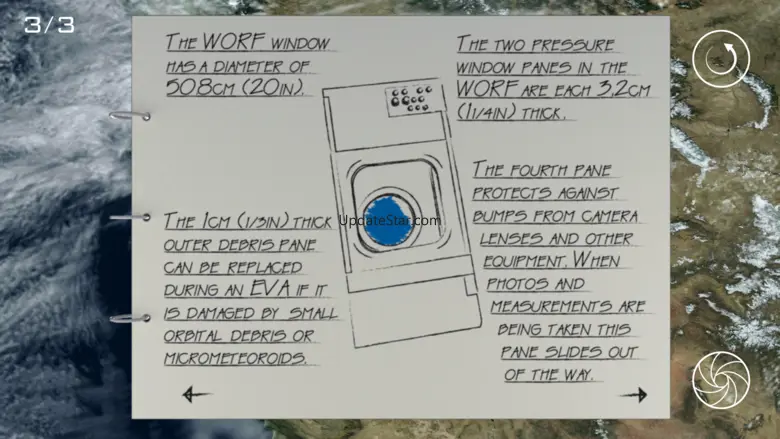 3/3
The WORF window
has a diameter of
50.8cm (20in).
The 1cm (1/3in) thick
outer debris pane
can be replaced
during an EVA if it
is damaged by small
orbital debris or
micrometeoroids.
UpdateStar.com
The two pressure
window panes in the
WORF are each 3,2cm
(11/4in) thick.
The fourth pane
protects against
bumps from camera
lenses and other
equipment. When
photos and
measurements are
being taken this
pane slides out
of the way.